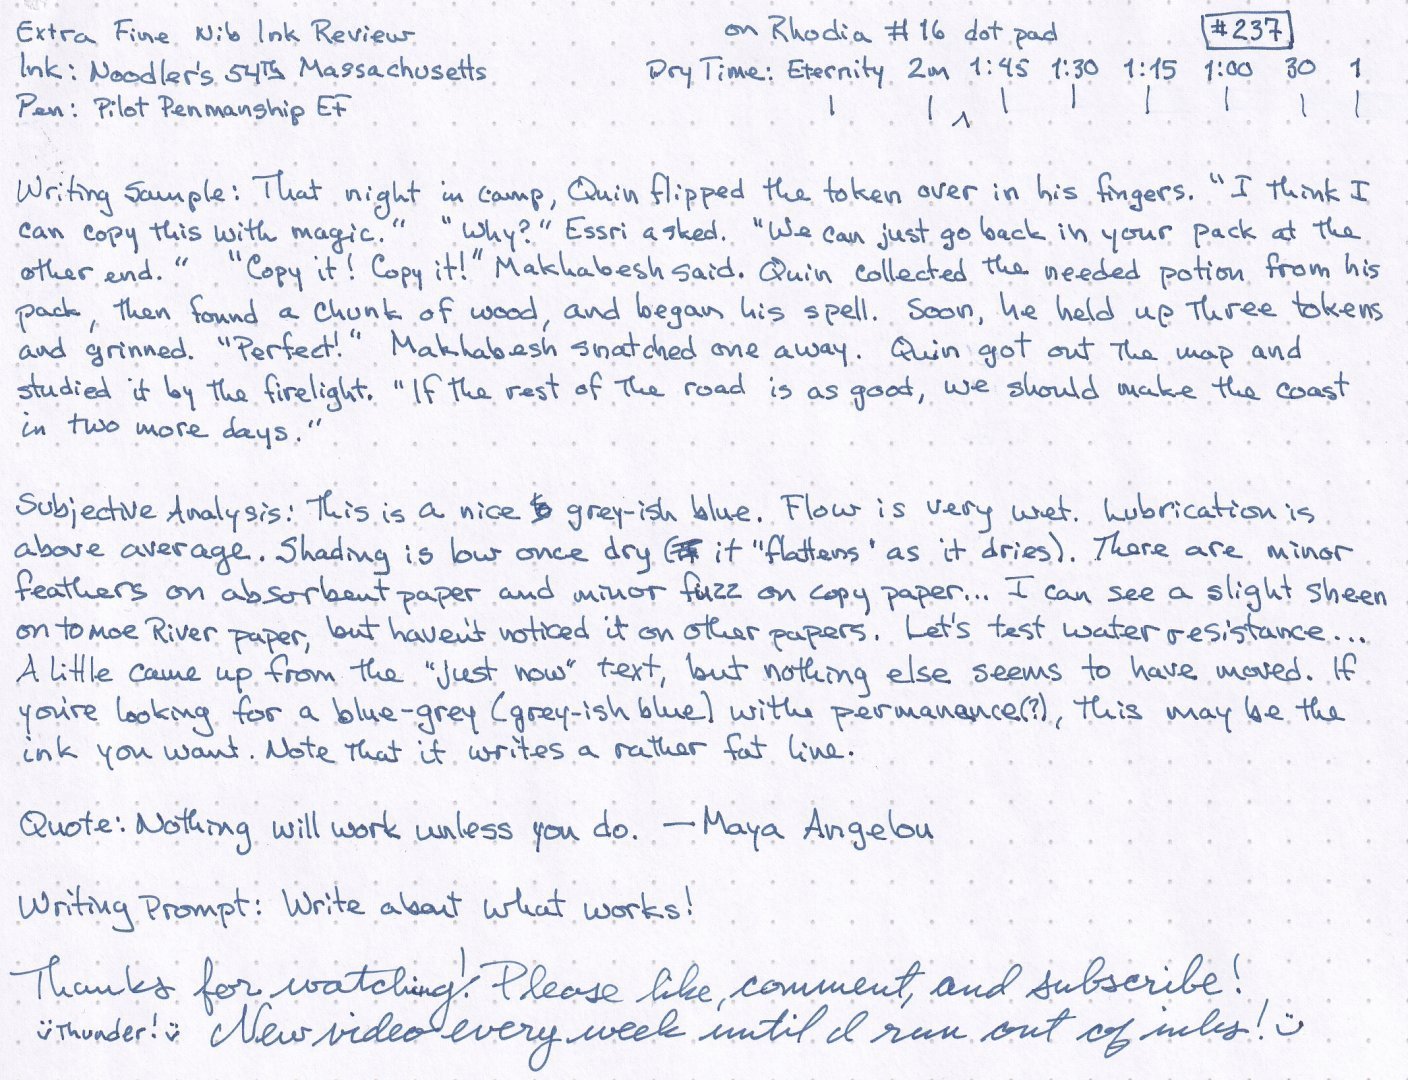 Extra Fine Nib Ink Review on Rhodia #16 dot pad #237
Ink: Noodler's 54th Massachusetts Dry Time: Eternity 2m 1:45 1:30 1:15 1:00 30 1
Pen: Pilot Penmanship EF
Writing Sample: That night in camp, Quin flipped the token over in his fingers. "I think I
can copy this with magic." "Why?" Essri asked. "We can just go back in your pack at the
other end." "Copy it! Copy it!" Makhabesh said. Quin collected the needed potion from his
pack, then found a chunk of wood, and began his spell. Soon, he held up three tokens
and grinned. "Perfect!" Makhabesh snatched one away. Quin got out the map and
studied it by the firelight. "If the rest of the road is as good, we should make the coast
in two more days."
Subjective Analysis: This is a nice grey-ish blue. Flow is very wet. Lubrication is
above average. Shading is low once dry (it "flattens" as it dries). There are minor
feathers on absorbent paper and minor fuzz on copy paper... I can see a slight sheen
on tomoe River paper, but haven't noticed it on other papers. Let's test water resistance...
A little came up from the "just now" text, but nothing else seems to have moved. If
you're looking for a blue-grey (grey-ish blue) withe permanance(?), this may be the
ink you want. Note that it writes a rather fat line.
Quote: Nothing will work unless you do. — Maya Angelou
Writing Prompt: Write about what works!
Thanks for watching! Please like, comment, and subscribe!
Thunder! New video every week until I run out of inks!